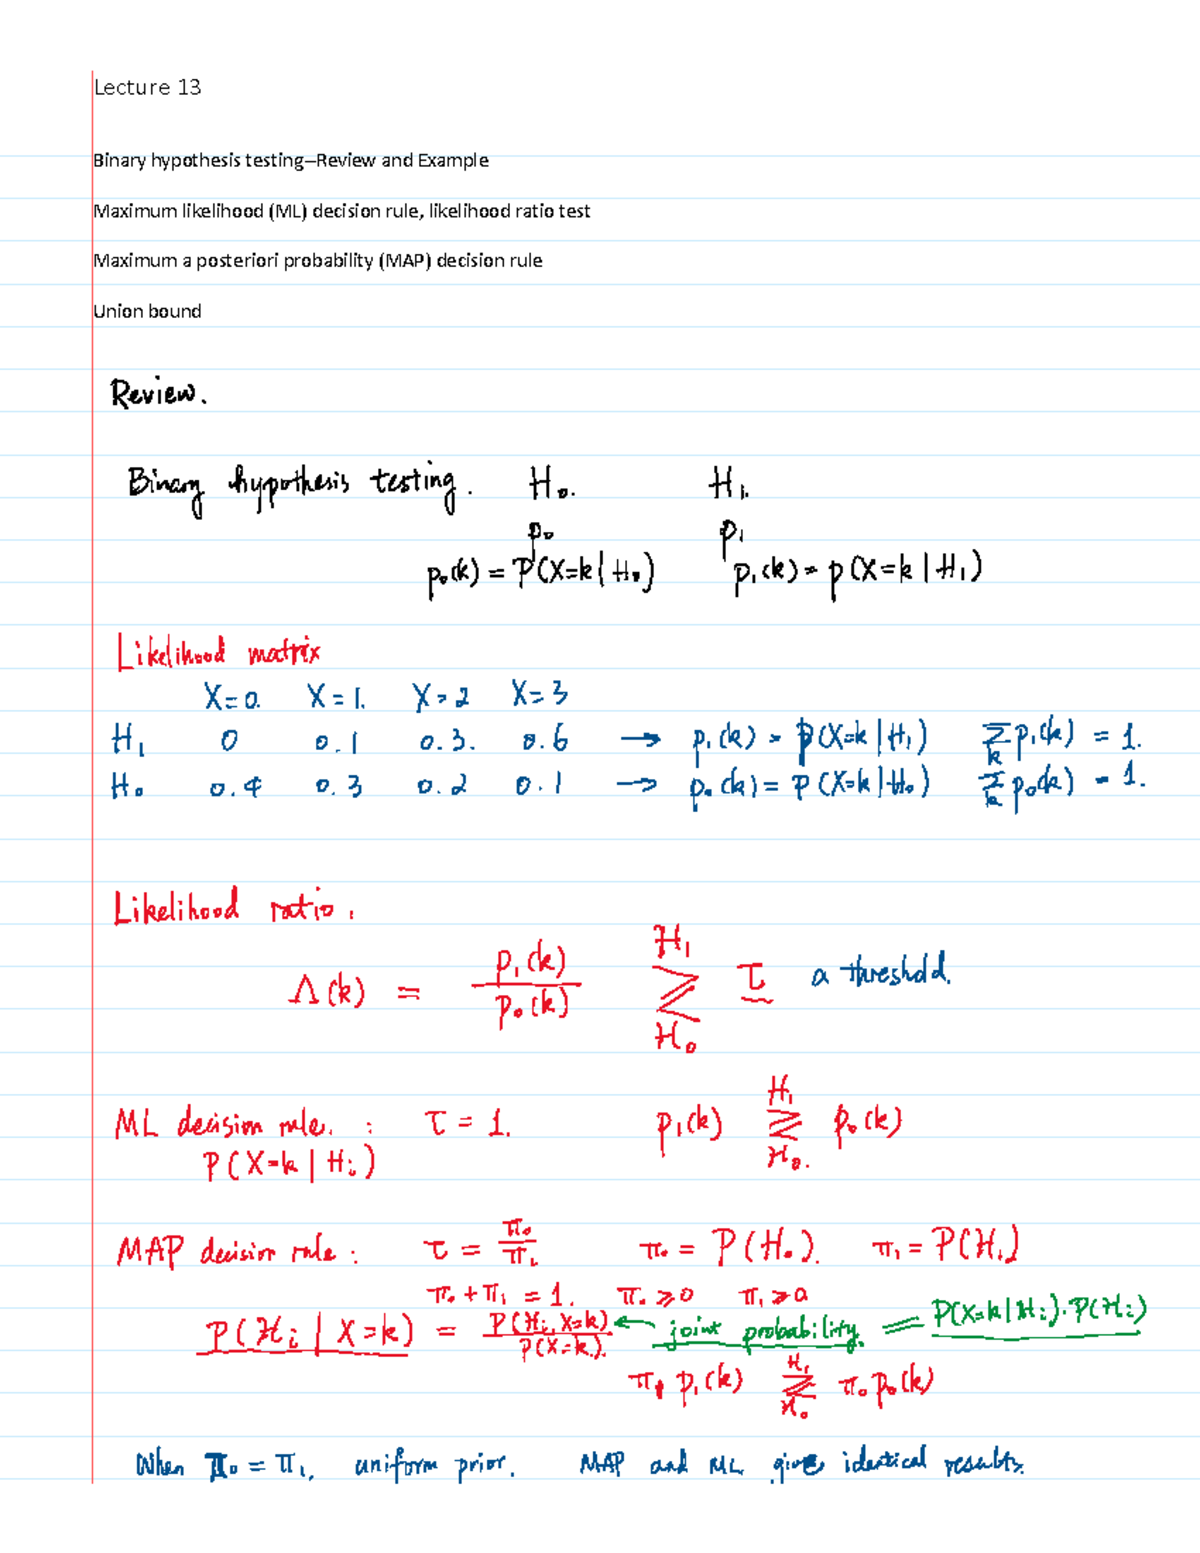 Lecture 13
Binary hypothesis testing–Review and Example
Maximum likelihood (ML) decision rule, likelihood ratio test
Maximum a posteriori probability (MAP) decision rule
Union bound
Review.
Binary hypothesis testing. H₀. H₁.
p₀ p₁
p₀(k) = P(X=k | H₀) p₁(k) = p(X=k | H₁)
Likelihood matrix
X=0. X=1. X=2 X=3
H₁ 0 0.1 0.3. 0.6 → p₁(k) = p(X=k | H₁) Σₖ p₁(k) = 1.
H₀ 0.4 0.3 0.2 0.1 → p₀(k) = P(X=k | H₀) Σₖ p₀(k) = 1.
Likelihood ratio.
Λ(k) = p₁(k) / p₀(k) H₁ ≷ H₀ τ a threshold.
ML decision rule. : τ = 1. p₁(k) H₁ ≷ H₀. p₀(k)
P(X=k | Hᵢ)
MAP decision rule : τ = π₀ / π₁ π₀ = P(H₀). π₁ = P(H₁)
π₀ + π₁ = 1. π₀ ≥ 0 π₁ ≥ 0
P(Hᵢ | X=k) = P(Hᵢ, X=k) / P(X=k). ← joint probability. = P(X=k | Hᵢ)·P(Hᵢ)
π₁ p₁(k) H₁ ≷ H₀ π₀ p₀(k)
When π₀ = π₁, uniform prior. MAP and ML give identical results.